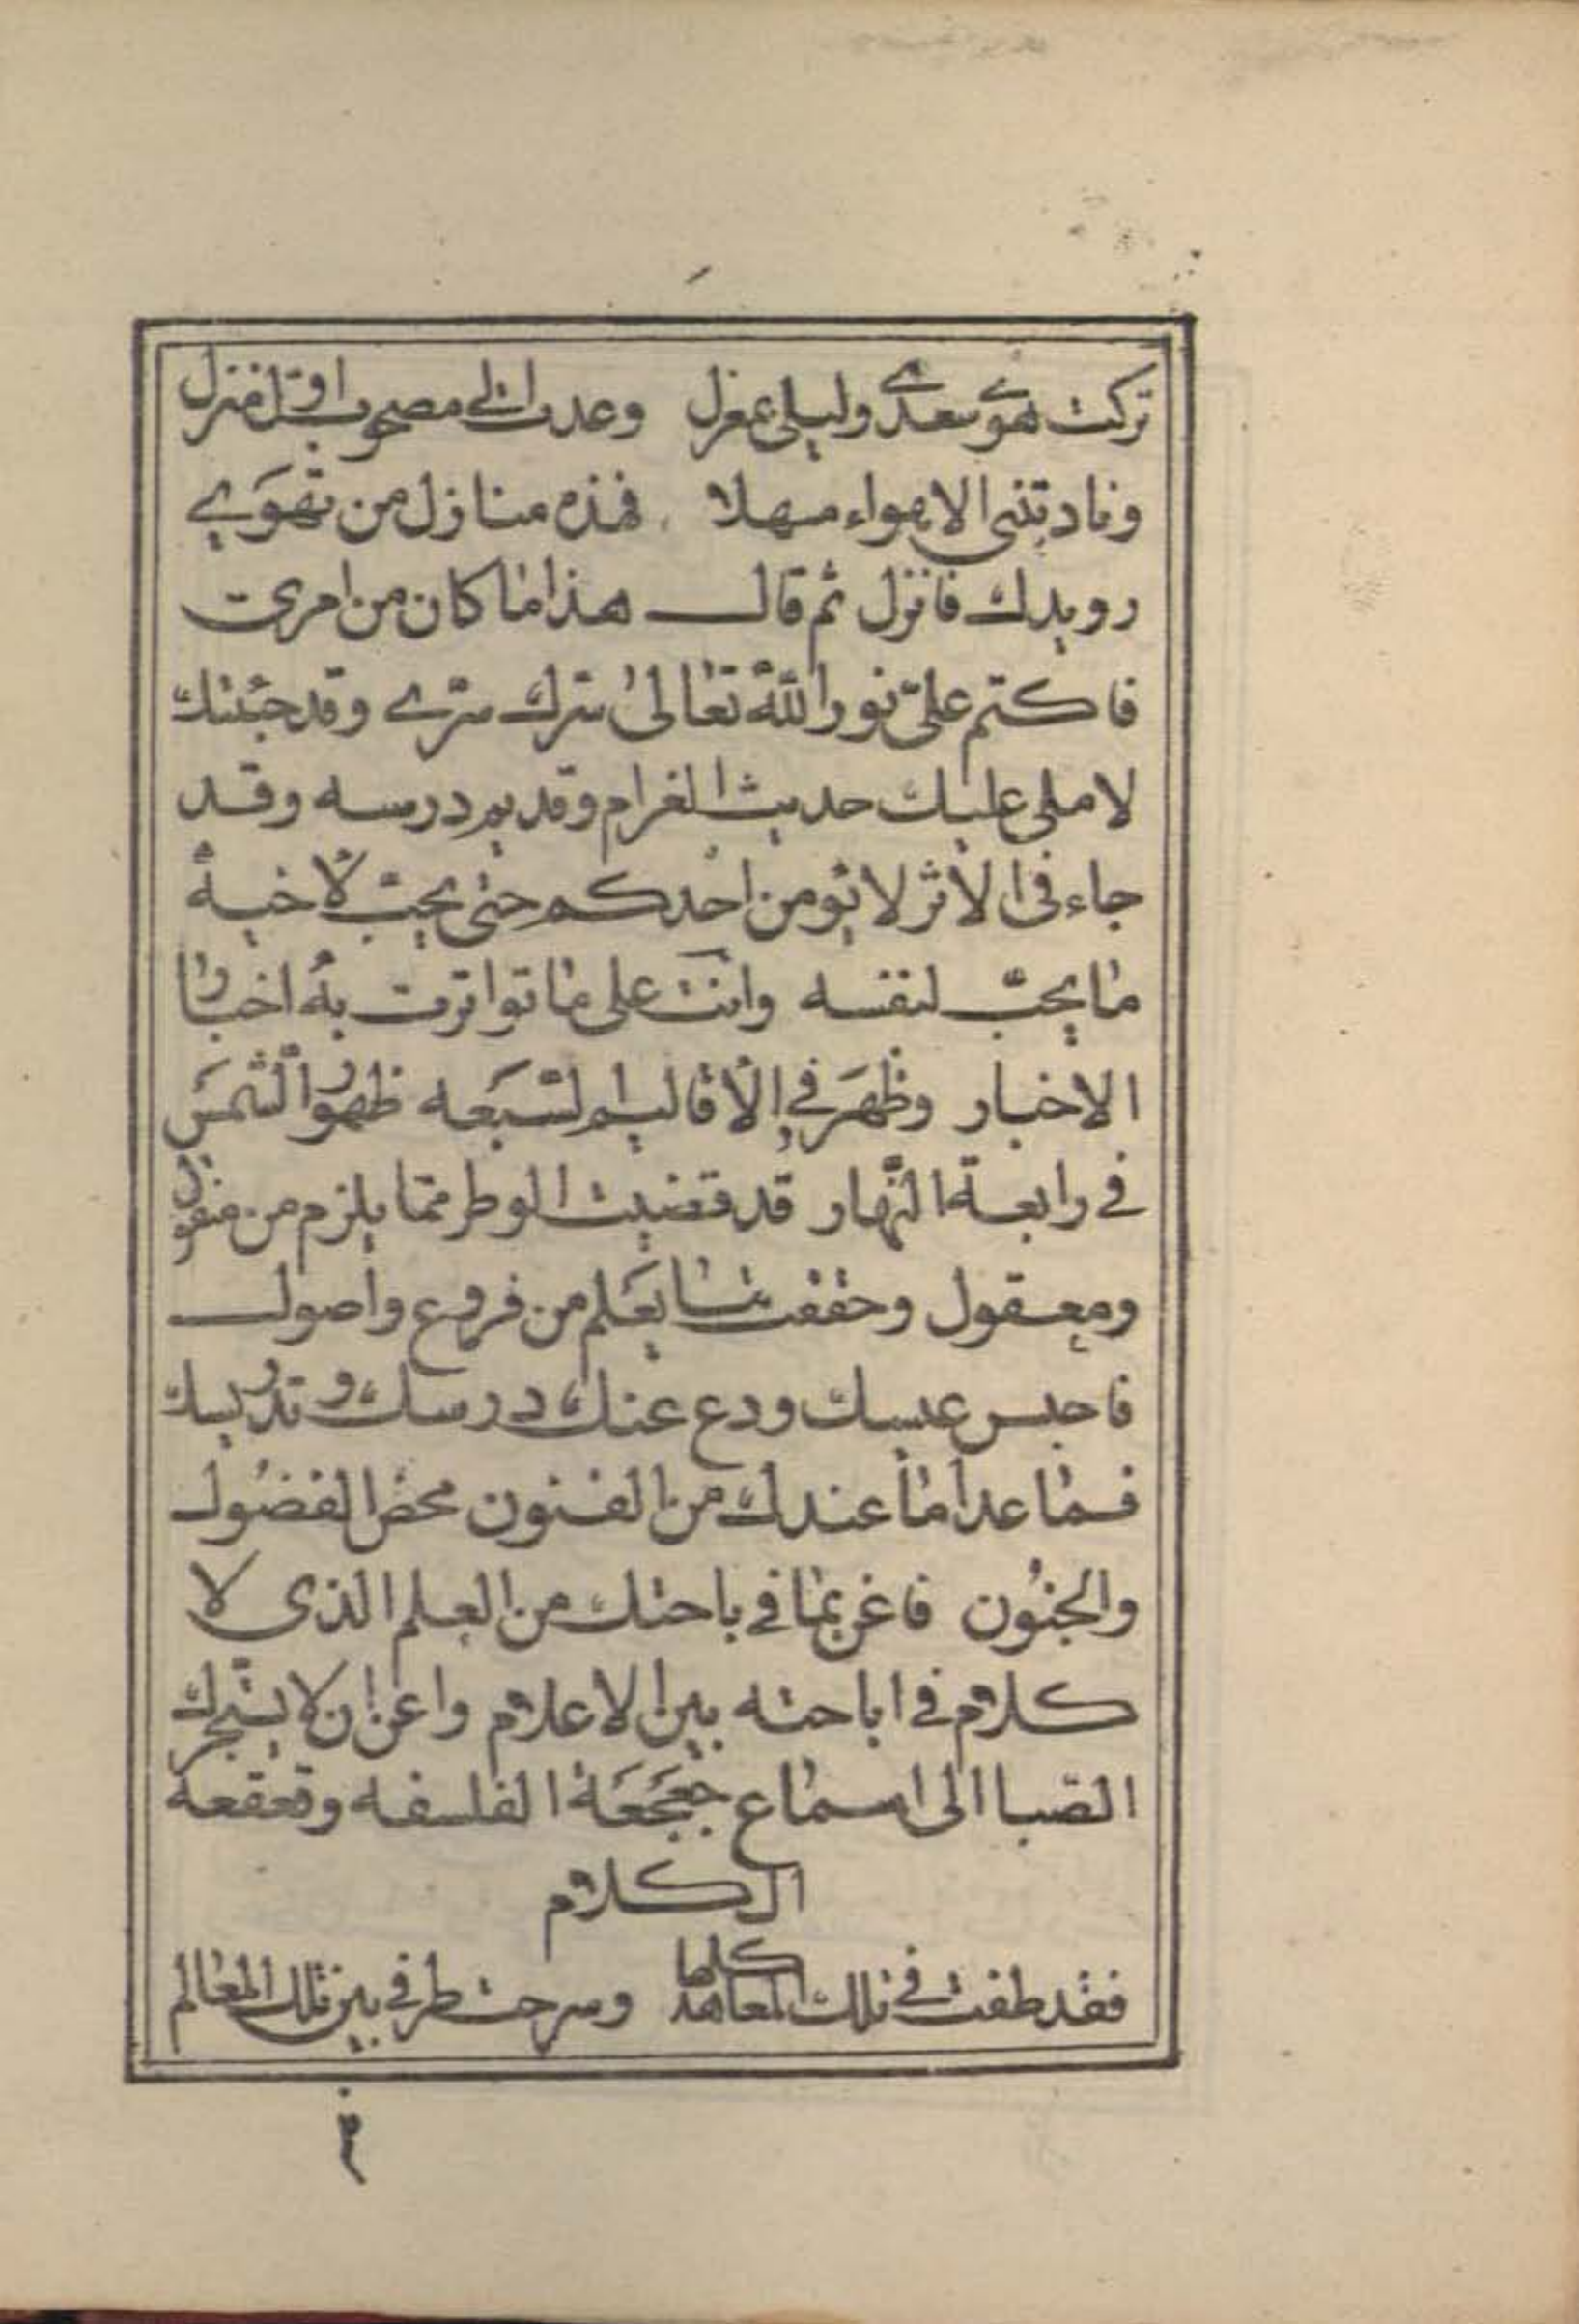 تركت هوى سعدى وليلى بمعزل وعدت الى مصحوب اوّل منزل
ونادتنى الاهواء مهلا فهذه منازل من تهوى
رويدك فانزل ثم قال هذا ما كان من امرى
فاكتم علىّ نور الله تعالى سرك سرى وقد جئتك
لاملى عليك حديث الغرام وقديم درسه وقد
جاء فى الأثر لا يؤمن احدكم حتى يحبّ لأخيه
ما يحبّ لنفسه وانت على ما تواترت به اخبار
الاخبار وظهر في الأقاليم السبعه ظهور الشمس
في رابعة النهار قد قضيت الوطر ممّا يلزم من منقول
ومعقول وحققت ما يعلم من فروع واصول
فاحبس عيسك ودع عنك درسك وتدريسك
فما عدا ما عندك من الفنون محض الفضول
والجنون فاغن بما في باحتك من العلم الذى لا
كلام في اباحته بين الاعلام واعن ان لا يستجرك
الصبا الى اسماع جعجعة الفلسفه وقعقعه
الكلام
فقد طفت في تلك المعاهد كلها وسرحت طرفي بين تلك المعالم
٢